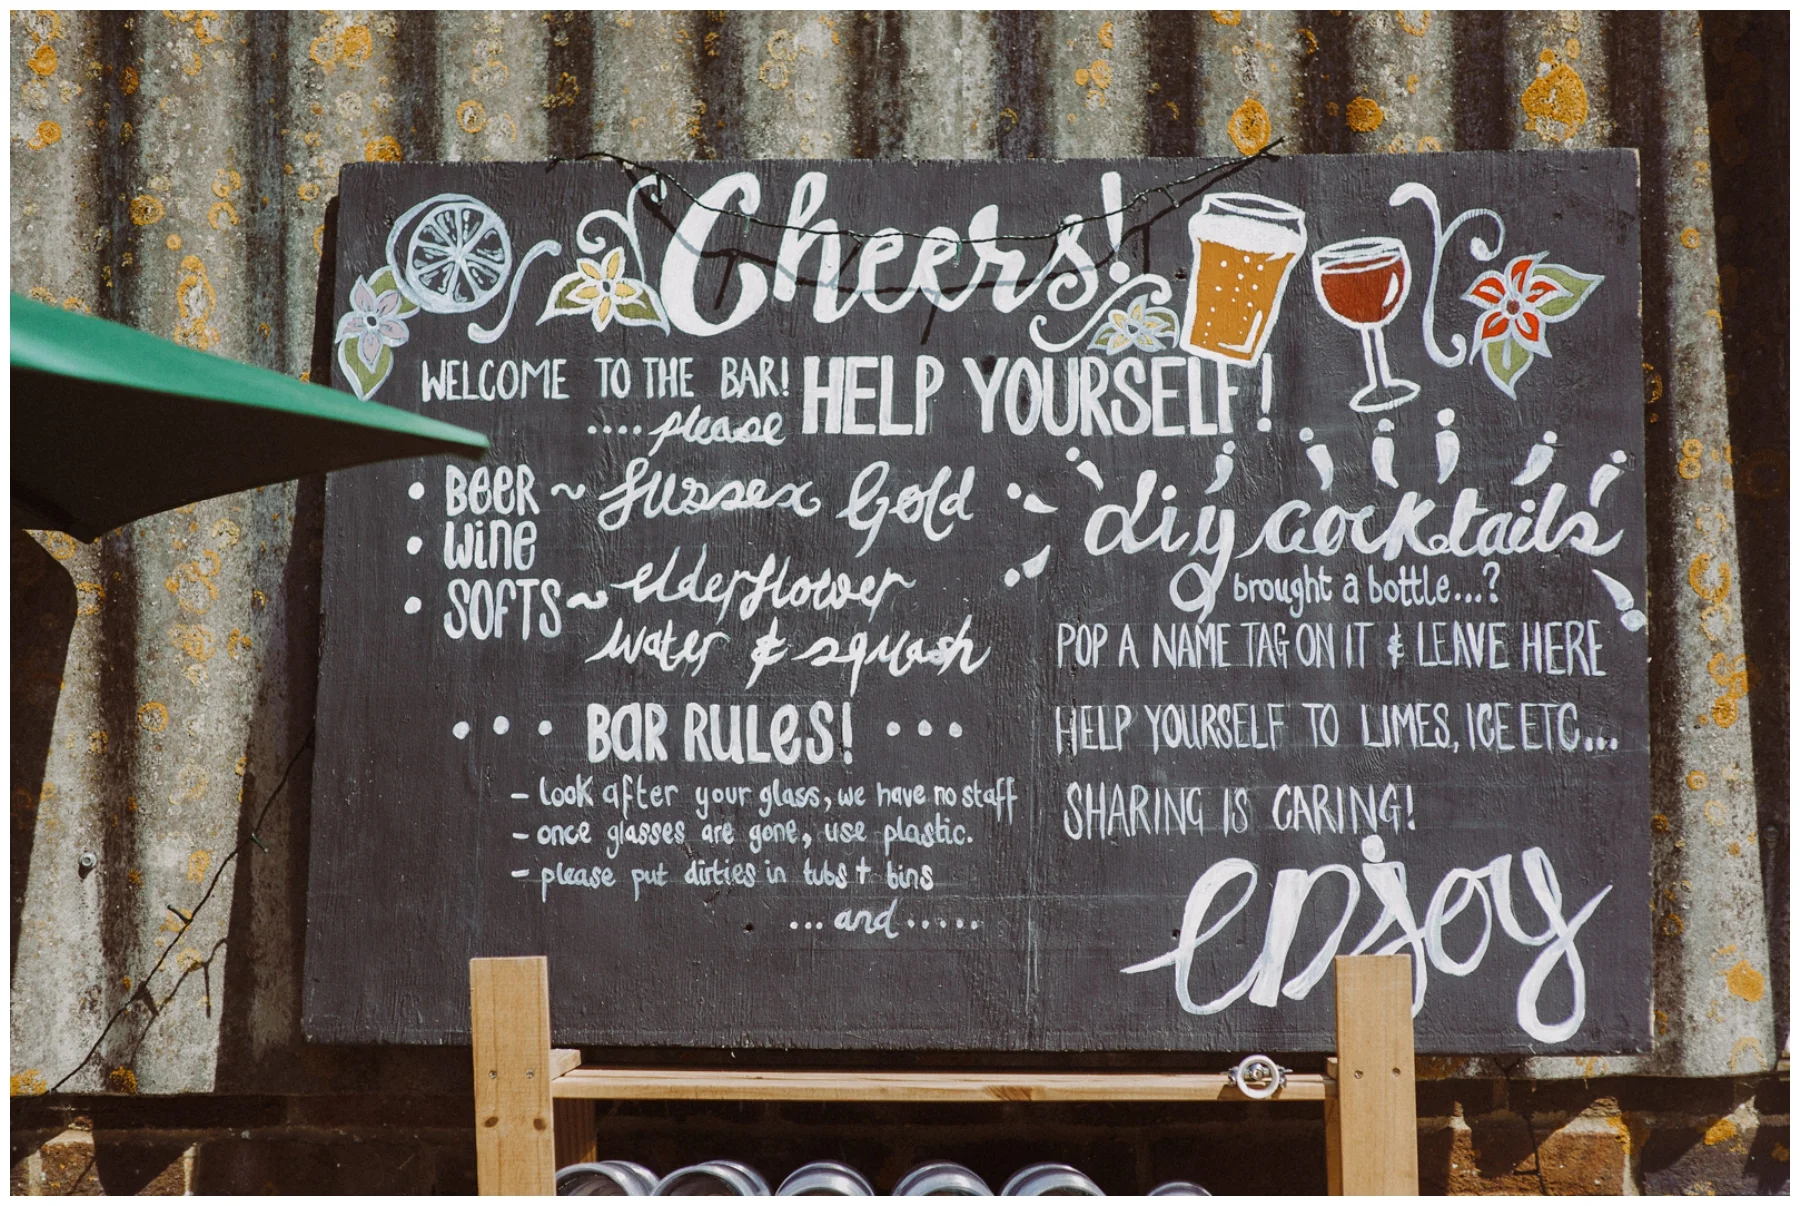 Cheers!
WELCOME TO THE BAR! HELP YOURSELF!
.... please
• BEER ~ Sussex Gold
• Wine
• SOFTS ~ elderflower
water & squash
... BAR RULES! ...
- look after your glass, we have no staff
- once glasses are gone, use plastic.
- please put dirties in tubs + bins
... and .....
diy cocktails
brought a bottle...?
POP A NAME TAG ON IT & LEAVE HERE
HELP YOURSELF TO LIMES, ICE ETC...
SHARING IS CARING!
enjoy